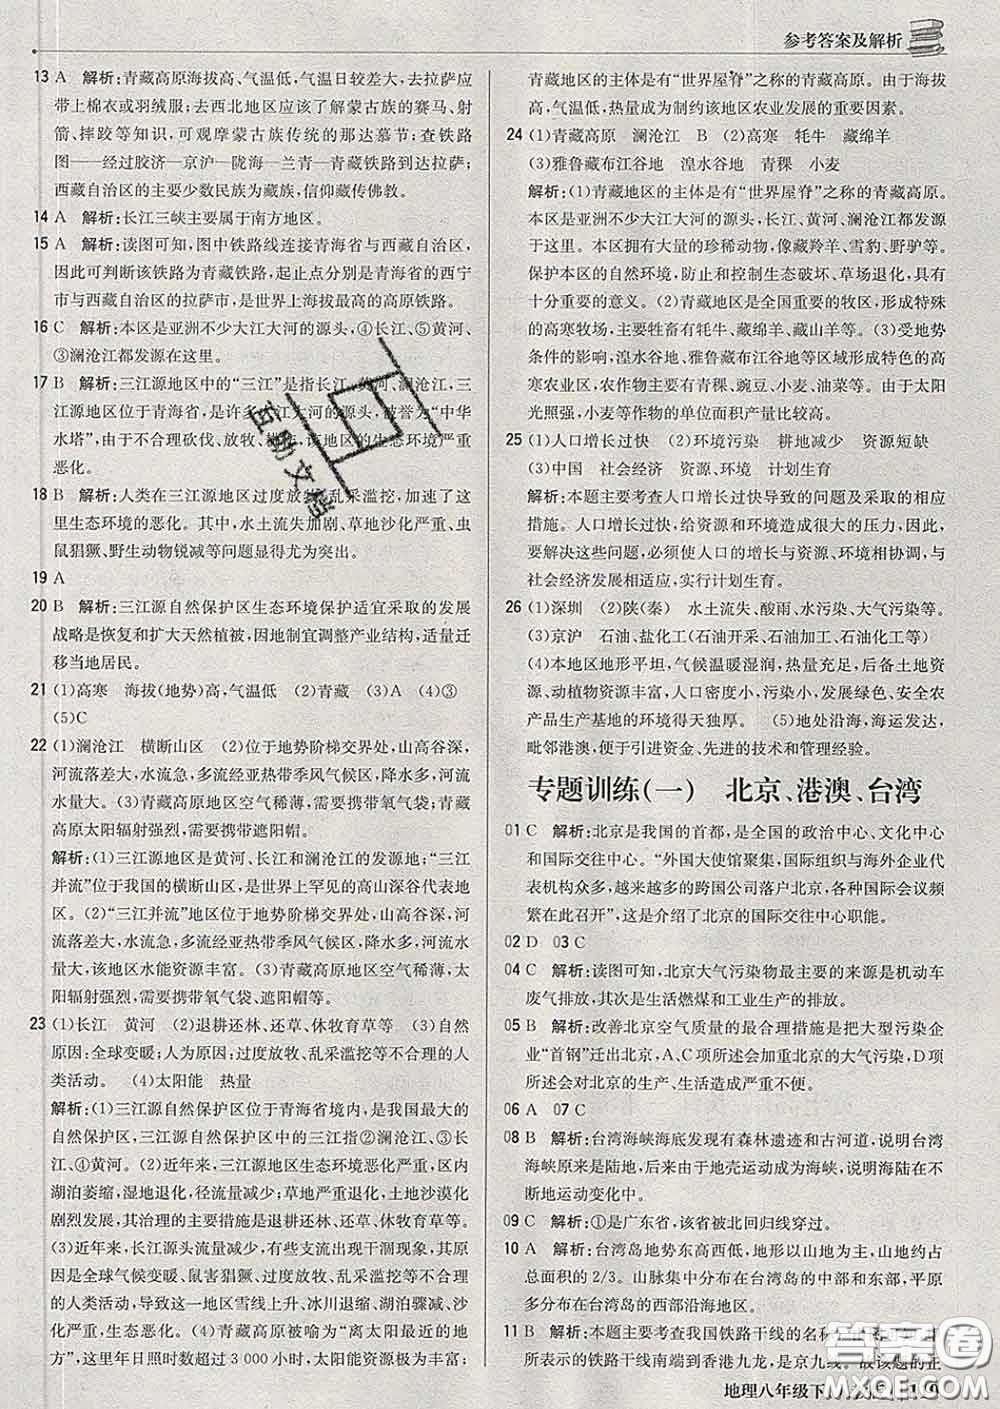 参考答案及解析
13 A 解析:青藏高原海拔高、气温低,气温日较差大,去拉萨应
带上棉衣或羽绒服;去西北地区应该了解蒙古族的赛马、射
箭、摔跤等知识,可观摩蒙古族传统的那达慕节;查铁路
图——经过胶济—京沪—陇海—兰青—青藏铁路到达拉萨;
西藏自治区的主要少数民族为藏族,信仰藏传佛教。
14 A 解析:长江三峡主要属于南方地区。
15 A 解析:读图可知,图中铁路线连接青海省与西藏自治区,
因此可判断该铁路为青藏铁路,起止点分别是青海省的西宁
市与西藏自治区的拉萨市,是世界上海拔最高的高原铁路。
16 C 解析:本区是亚洲不少大江大河的源头,④长江、⑤黄河、
③澜沧江都发源在这里。
17 B 解析:三江源地区中的“三江”是指长江、黄河、澜沧江,三
江源地区位于青海省,是许多大江大河的源头,被誉为“中华
水塔”,由于不合理砍伐、放牧、樵采,该地区的生态环境严重
恶化。
18 B 解析:人类在三江源地区过度放牧、乱采滥挖,加速了这
里生态环境的恶化。其中,水土流失加剧、草地沙化严重、虫
鼠猖獗、野生动物锐减等问题显得尤为突出。
19 A
20 B 解析:三江源自然保护区生态环境保护适宜采取的发展
战略是恢复和扩大天然植被,因地制宜调整产业结构,适量迁
移当地居民。
21 (1)高寒 海拔(地势)高,气温低 (2)青藏 (3)A (4)③
(5)C
22 (1)澜沧江 横断山区 (2)位于地势阶梯交界处,山高谷深,
河流落差大,水流急,多流经亚热带季风气候区,降水多,河流
水量大。(3)青藏高原空气稀薄,需要携带氧气袋;青藏高
原太阳辐射强烈,需要携带遮阳帽。
解析:(1)三江源地区是黄河、长江和澜沧江的发源地;“三江
并流”位于我国的横断山区,是世界上罕见的高山深谷代表地
区。(2)“三江并流”地区位于地势阶梯交界处,山高谷深,河
流落差大,水流急;多流经亚热带季风气候区,降水多,河流水
量大,因此,该地区水能资源丰富。(3)青藏高原空气稀薄,太
阳辐射强烈,需要携带氧气袋、遮阳帽等。
23 (1)长江 黄河 (2)退耕还林、还草、休牧育草等 (3)自然
原因:全球变暖;人为原因:过度放牧、乱采滥挖等不合理的人
类活动。 (4)太阳能 热量
解析:(1)三江源自然保护区位于青海省境内,是我国最大的
自然保护区,三江源自然保护区中的三江指②澜沧江、③长
江、④黄河。(2)近年来,三江源地区生态环境恶化严重,区内
湖泊萎缩,湿地退化,径流量减少;草地严重退化,沙化现象严
重,其治理的主要措施是退耕还林还草、休牧育草等。
(3)近年来,长江干流流量减少,有些支流出现干涸现象,其原
因是全球变暖、鼠害猖獗、过度放牧、乱采滥挖等自然原因和
人类活动,导致这一地区雪线上升、冰川退却、湖泊骤减、草地
退化严重。(4)青藏高原被喻为“离太阳最近的地
方”,这里年日照时数超过3 000小时,太阳能资源丰富;
青藏地区的主体是有“世界屋脊”之称的青藏高原。由于海拔
高,气温低,热量成为制约该地区农业发展的重要因素。
24 (1)青藏高原 澜沧江 B (2)高寒 牦牛 藏绵羊
(3)雅鲁藏布江谷地 湟水谷地 青稞 小麦
解析:(1)青藏地区的主体是有“世界屋脊”之称的青藏高原。
本区是亚洲不少大江大河的源头,长江、黄河、澜沧江都发源
于这里。本区拥有大量的珍稀动物,像藏羚羊、雪豹、野驴等。
保护本区的自然环境,防止和控制生态破坏、草场退化,具有
十分重要的意义。(2)青藏地区是全国重要的牧区,形成特殊
的高寒牧场,主要牲畜有牦牛、藏绵羊、藏山羊等。(3)受地势
条件的影响,湟水谷地、雅鲁藏布江谷地等区域形成特殊的高
寒农业区,农作物主要有青稞、豌豆、小麦、油菜等。由于太阳
光照强,小麦等作物的单位面积产量比较高。
25 (1)人口增长过快 (2)环境污染 耕地减少 资源短缺
(3)中国 社会经济 资源、环境 计划生育
解析:本题主要考查人口增长过快导致的问题及采取的相应
措施。人口增长过快,给资源和环境造成很大的压力,因此,
要解决这些问题,必须使人口的增长与资源、环境相协调,与
社会经济发展相适应,实行计划生育。
26 (1)深圳 (2)陕(秦) 水土流失、酸雨、水污染、大气污染等。
(3)京沪 石油、盐化工(石油开采、石油加工、石油化工)
(4)本地区地形平坦,气候温暖湿润,热量充足,后备土地资
源丰富,动植物资源丰富,人口密度小,污染小,发展绿色、安全农
产品生产基地的环境得天独厚。 (5)地处沿海,海运发达,
毗邻港澳,便于引进资金、先进的技术和管理经验。
专题训练(一) 北京、港澳、台湾
01 C 解析:北京是我国的首都,是全国的政治中心、文化中心
和国际交往中心。“外国大使馆聚集,国际组织与海外企业代
表机构众多,越来越多的跨国公司落户北京,各种国际会议频
繁在此召开”,这是介绍了北京的国际交往中心职能。
02 D 03 C
04 C 解析:读图可知,北京大气污染物最主要的来源是机动车
废气排放,其次是生活燃煤和工业生产的排放。
05 B 解析:改善北京空气质量的最合理措施是把大型污染企
业“首钢”迁出北京,A、C项叙述会加重北京的大气污染,D项
叙述会对北京的生产、生活造成严重不便。
06 A 07 C
08 B 解析:台湾海峡海底发现有森林遗迹和古河道,说明台湾
海峡以前是陆地,后来由于地壳运动成为海峡,说明海陆在不
断地运动变化中。
09 C 解析:①是广东省,该省被北回归线穿过。
10 A 解析:台湾岛地势东高西低,地形以山地为主,山地约占
总面积的2/3。山脉集中分布在台湾岛的中部和东部,平原
多分布在台湾岛的西部沿海地区。
11 B 解析:本题主要考查我国铁路干线的名称
所示的铁路干线南端到香港九龙,是京九线。故该题的正
地理八年级下
互助文档
答案圈
MXQE.COM